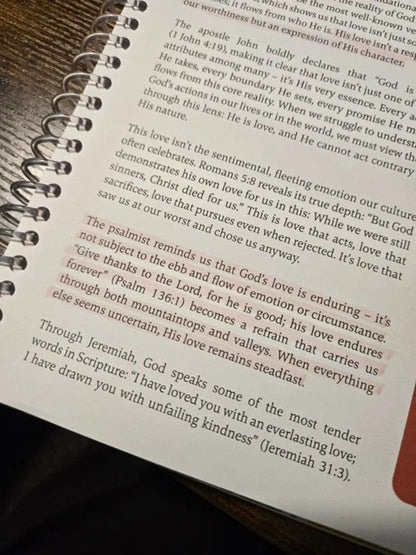 which shows us that love isn't just so
it flows from who He is. His love isn't a resp
our worthiness but an expression of His character.
The apostle John boldly declares that "God is
(1 John 4:19), making it clear that love isn't just one of
attributes among many – it's His very essence. Every ac
He takes, every boundary He sets, every promise He
flows from this core reality. When we struggle to underst
God's actions in our lives or in the world, we must view th
through this lens: He is love, and He cannot act contrary
His nature.
This love isn't the sentimental, fleeting emotion our cultur
often celebrates. Romans 5:8 reveals its true depth: "But God
demonstrates his own love for us in this: While we were still
sinners, Christ died for us." This is love that acts, love that
sacrifices, love that pursues even when rejected. It's love that
saw us at our worst and chose us anyway.
The psalmist reminds us that God's love is enduring – it's
not subject to the ebb and flow of emotion or circumstance.
"Give thanks to the Lord, for he is good; his love endures
forever" (Psalm 136:1) becomes a refrain that carries us
through both mountaintops and valleys. When everything
else seems uncertain, His love remains steadfast.
Through Jeremiah, God speaks some of the most tender
words in Scripture: "I have loved you with an everlasting love;
I have drawn you with unfailing kindness" (Jeremiah 31:3).